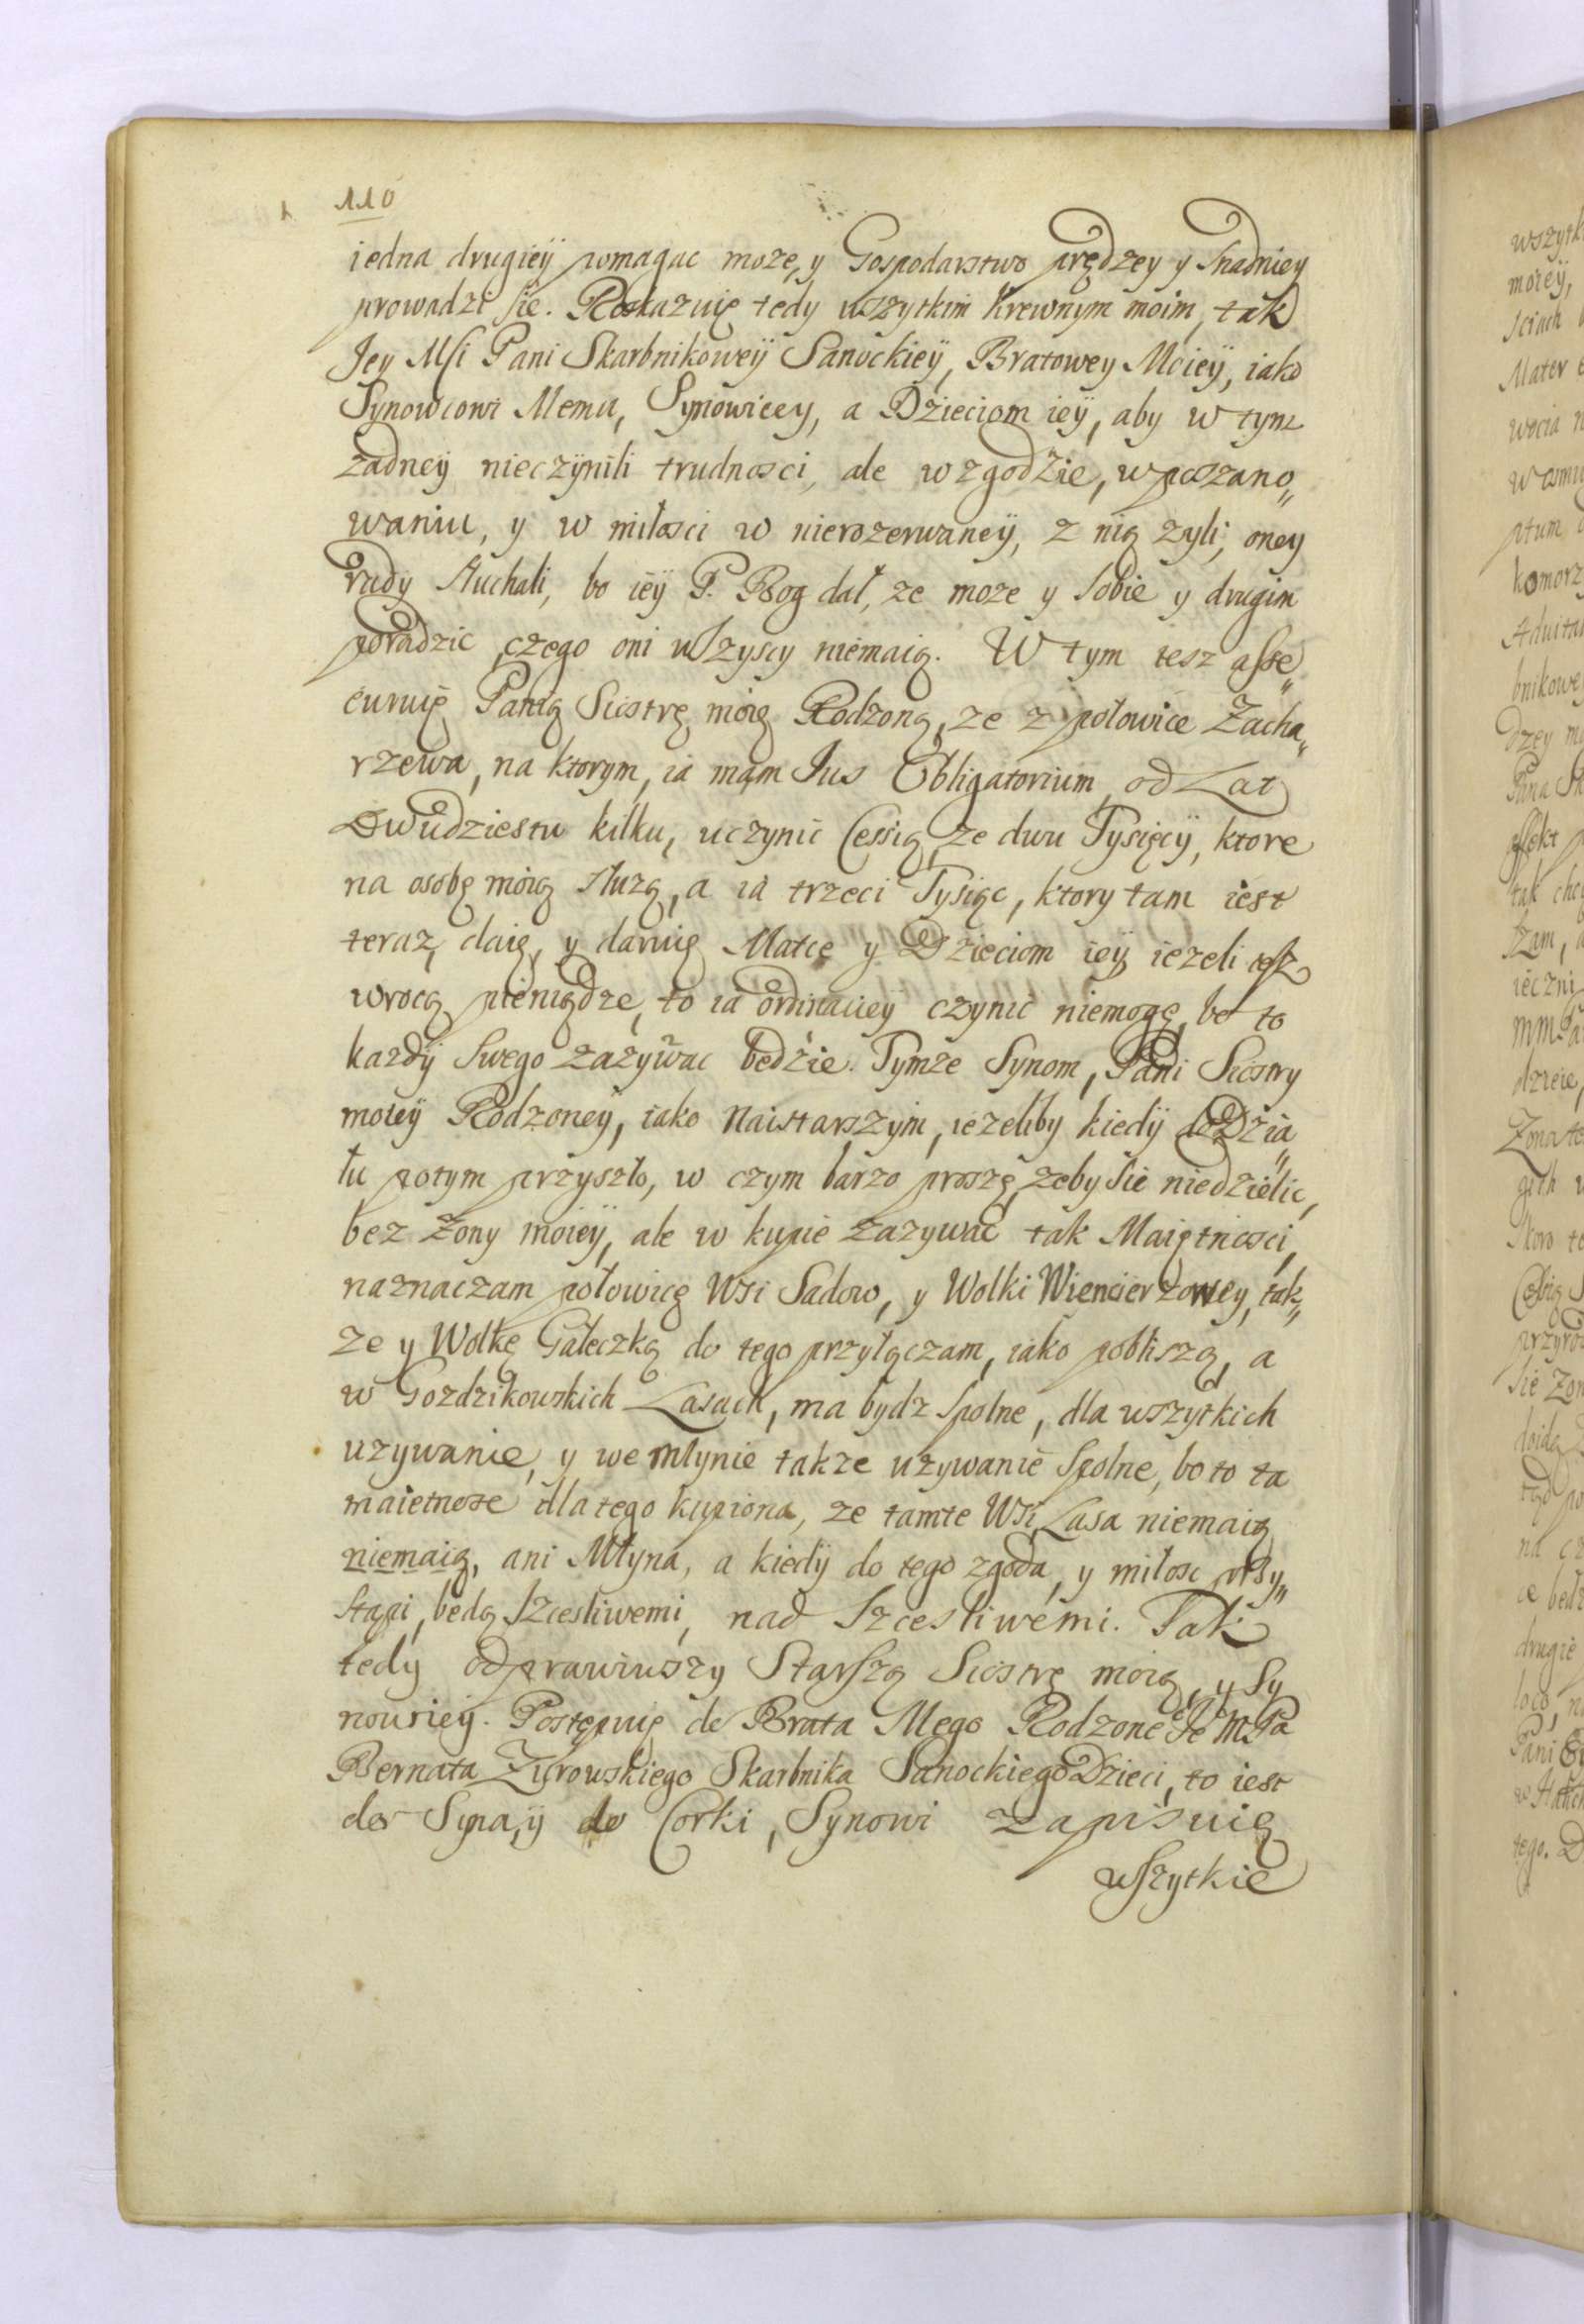 110
iedna drugieÿ pomagac może, y Gospodarstwo prędzey y snadniey
prowadzi sie. Roskazuię tedy wszytkim krewnym moim, tak
Jey Msi Pani Skarbnikoweÿ Sanockieÿ, Bratowey Moieÿ, iako
Synowcowi Memu, Synowicey, a Dzieciom ieÿ, aby w tym
zadneÿ nieczÿnili trudnosci, ale w zgodzie, w poszano„
waniu, y w miłosci w nierozerwaneÿ, z nią zyli, oney
rady słuchali, bo ieÿ P. Bog dał, ze moze y sobie y drugim
poradzic, czego oni wszyscy niemaią. W tym tesz asse„
curuię Panią Siostrę moię Rodzoną, ze z połowice Zacha„
rzewa, na ktorym, ia mam Jus Obligatorium, od Lat
Dwudziestu kilku, uczynic Cessią, ze dwu Tysięcÿ, ktore
na osobę moią służą, a ia trzeci Tysiąc, ktory tam iest
teraz, daię, y daruię Matce y Dzieciom ieÿ iezeli iesz
wrocą pieniądze, to ia ordinacieÿ czynic niemogę, bo to
kazdÿ swego zazÿwac będzie. Tymze Synom, Pani Siostry
moieÿ Rodzoneÿ, iako Naistarszÿm, iezeliby kiedÿ do Dzia„
łu potym przyszło, w czym barzo proszę, zeby sie niedzielic,
bez zony moieÿ, ale w kupie zazywac tak Maiętnosci,
naznaczam połowicę Wsi Sadow, y Wolki Wiencierzowey, tak„
ze y Wolkę Gałeczką do tego przyłączam, iako poblisżą, a
w Gozdzikowskich Lasach, ma bydz spolne, dla wszytkich
uzywanie, y we młynie takze uzywanie spolne, bo to ta
maietnosc dla tego kupiona, ze tamte Wsi, Lasa niemaią
niemaią, ani Młyna, a kiedÿ do tego zgoda, y miłosc przy„
stąpi, będą szczesliwemi, nad szczesliwemi. Tak
tedy odprawiwszy Starszą Siostrę moię, y Sy
now ieÿ. Postępuię do Brata Mego Rodzone Je M Pa
Bernata Zurowskiego Skarbnika Sanockiego Dzieci, to iest
do Syna, ÿ do Corki, Synowi zapisuię
wszytkie